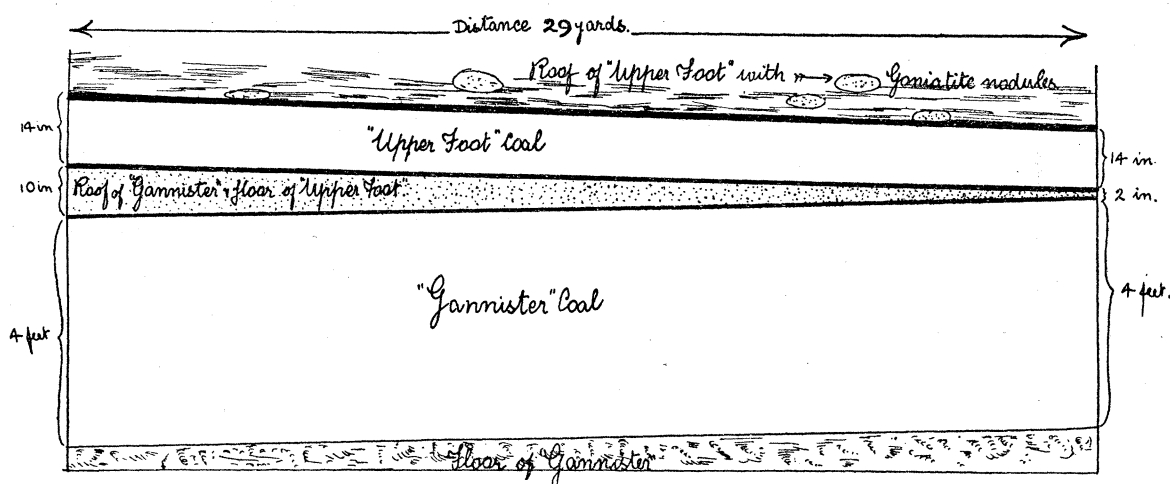 Distance 29 yards.
Roof of "Upper Foot" with Goniatite nodules
14 in
"Upper Foot" Coal
14 in.
10 in
Roof of "Gannister" & floor of "Upper Foot"
2 in.
"Gannister" Coal
4 feet
4 feet.
Floor of "Gannister"